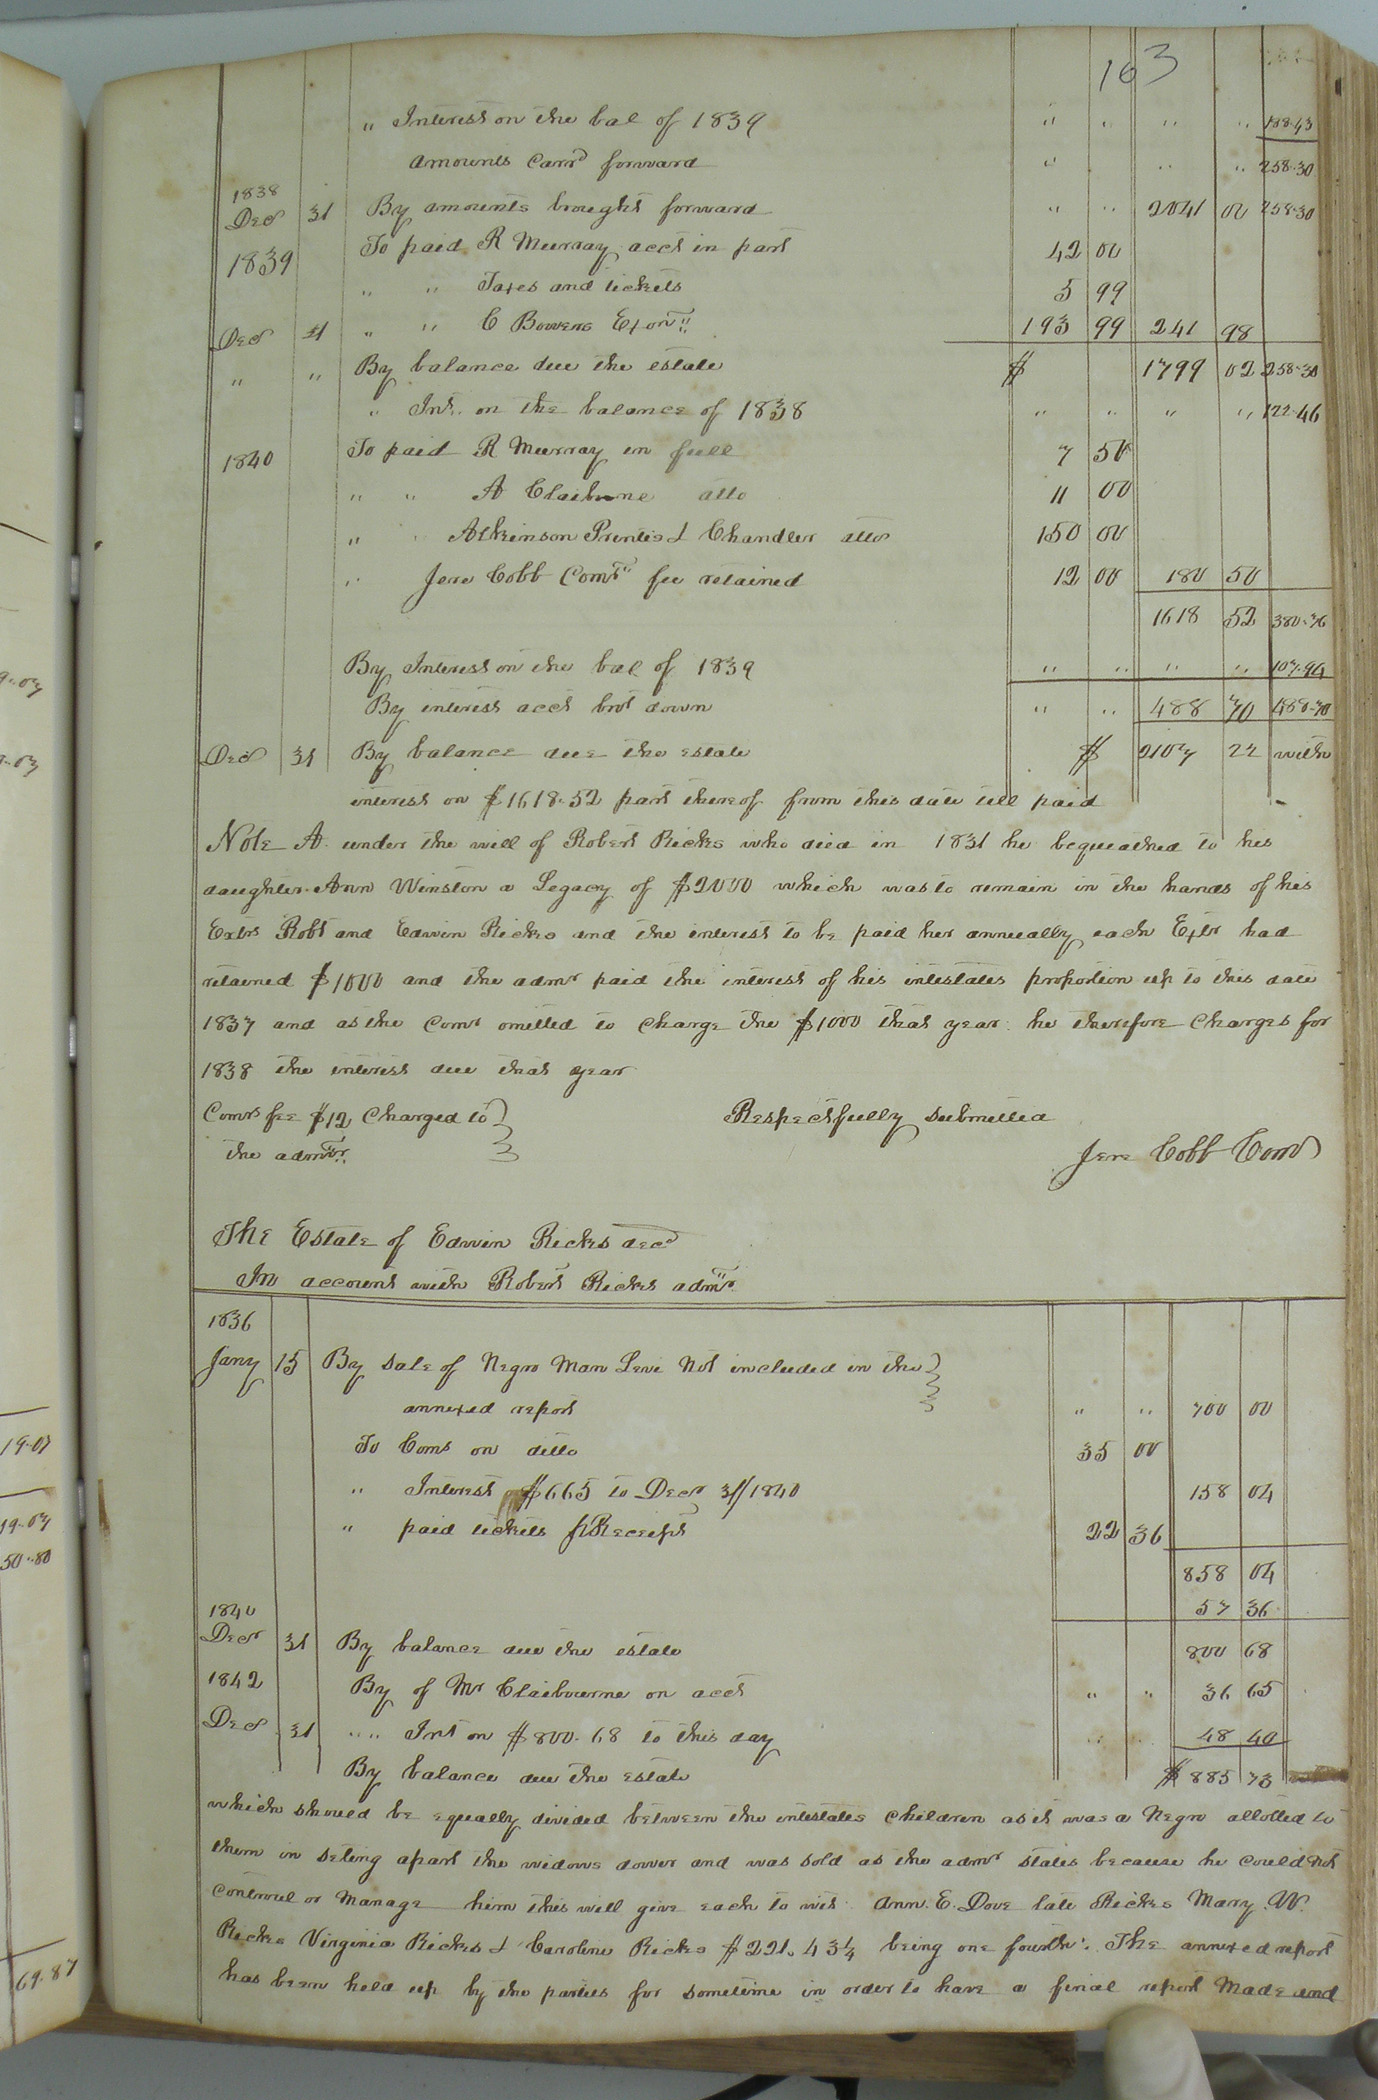 163
" Interest on the bal of 1839 " " " " 188.43
Amounts Carrd forward " " " 258.30
1838
Decr 31 By amounts brought forward " " 2041 00 258.30
1839 To paid R Murray acct in part 42 00
" " Taxes and tickets 5 99
Decr 31 " " C Bowers Exonr 193 99 241 98
" " By balance due the estate $ 1799 02 258.30
" Int. on the balance of 1838 " " " " 122.46
1840 To paid R Murray in full 7 50
" " A Claiborne ditto 11 00
" " Atkinson Prentis & Chandler ditto 150 00
" Jere Cobb Comr fee retained 12 00 180 50
1618 52 380.76
By Interest on the bal of 1839 " " " " 107.94
By interest acct brot down " " 488 70 488.70
Decr 31 By balance due the estate $ 2107 22 with
interest on $1618.52 part thereof from this date till paid
Note A. under the will of Robert Ricks who died in 1831 he bequeathed to his
daughter Ann Winston a Legacy of $2000 which was to remain in the hands of his
Extrs Robt and Edwin Ricks and the interest to be paid her annually each Extr had
retained $1000 and the admr paid the interest of his intestates proportion up to this date
1837 and as the Comr omitted to charge the $1000 that year he therefore Charges for
1838 the interest due that year
Comrs fee $12 Charged to Respectfully submitted
the admr Jere Cobb Comr
The Estate of Edwin Ricks decd
In account with Robert Ricks admr
1836
Jany 15 By Sale of Negro Man Levi Not included in the
annexed report " " 700 00
To Coms on ditto 35 00
" Interest $665 to Decr 31/1840 158 04
" paid tickets pr Receipt 22 36
858 04
1840 57 36
Decr 31 By balance due the estate 800 68
1842 By of Mr Claibourne on acct " " 36 65
Decr 31 " " Int on $800.68 to this day " " 48 40
By balance due the estate $ 885 73
which should be equally divided between the intestates children as it was a Negro allotted to
them in seting apart the widows dower and was sold as the admr states because he could not
controul or Manage him this will give each to wit Ann. E. Dove late Ricks Mary. W.
Ricks Virginia Ricks & Caroline Ricks $221.43¼ being one fourth. The annexed report
has been held up by the parties for sometime in order to have a final report Made and
19.07
19.07
50.80
69.87